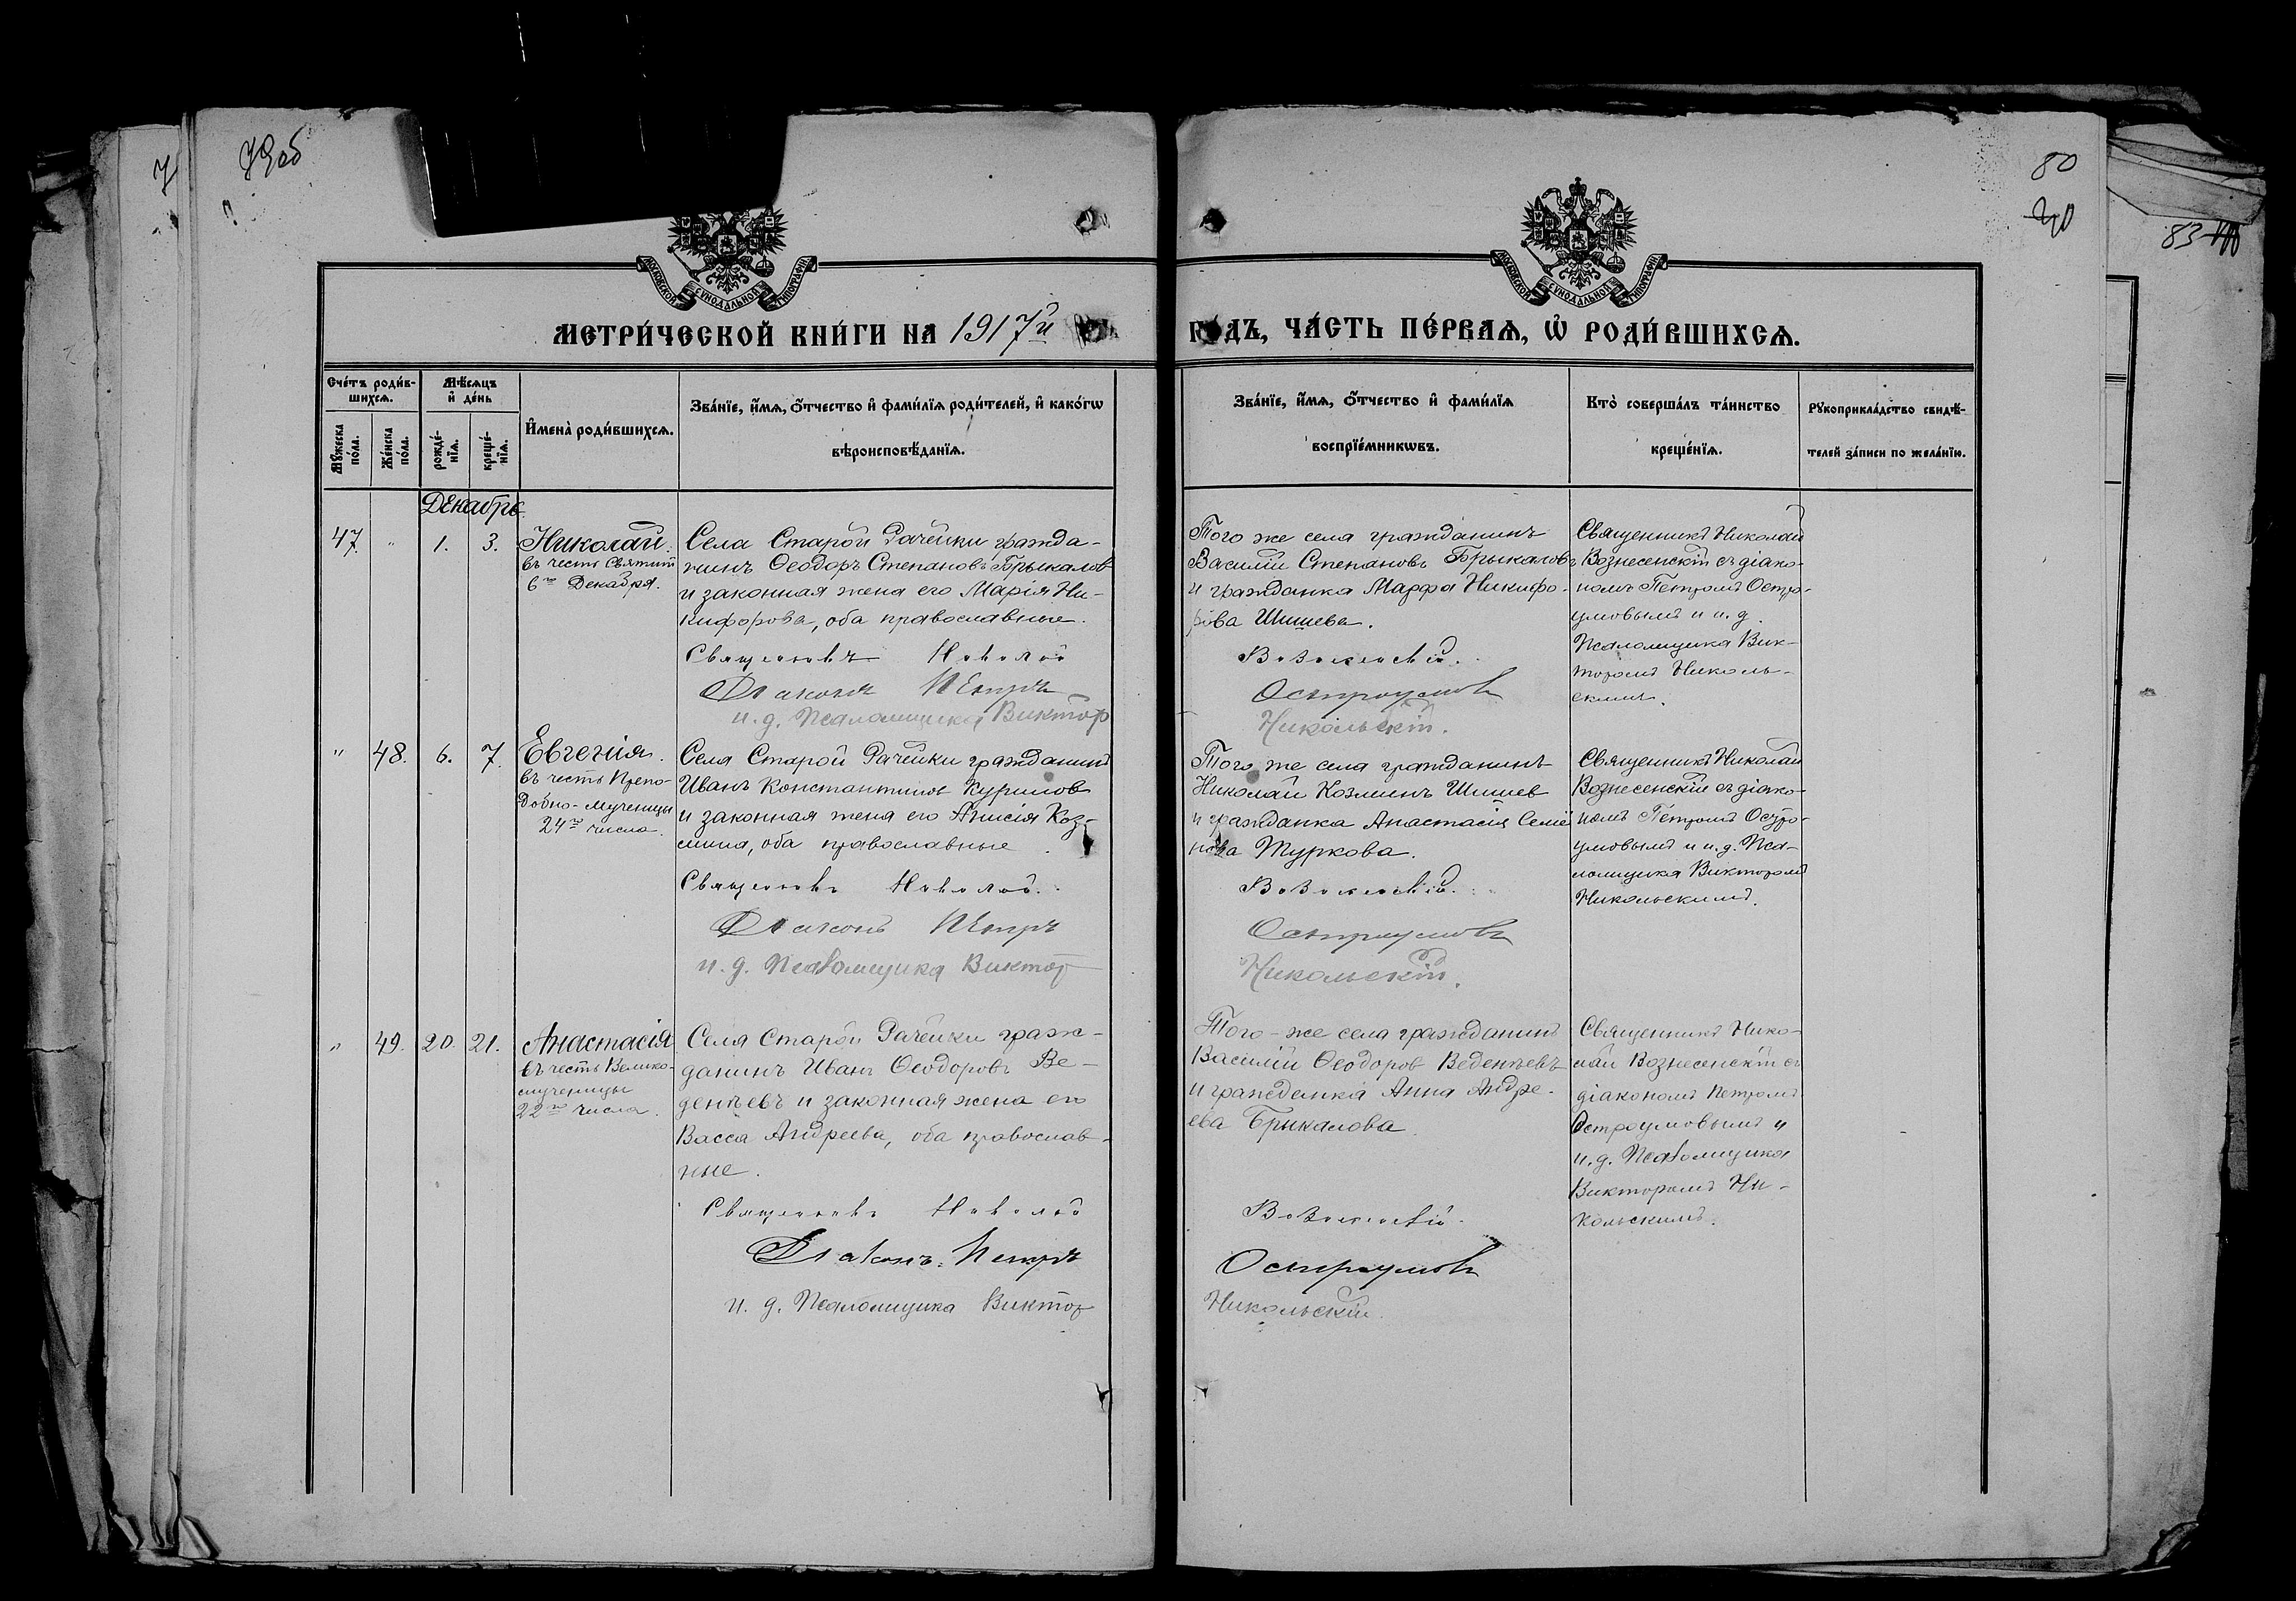 79об
80
83
МОСКОВСКОЙ СѴНОДАЛЬНОЙ ТИПОГРАФІИ
МОСКОВСКОЙ СѴНОДАЛЬНОЙ ТИПОГРАФІИ
МЕТРИ́ЧЕСКОЙ КНИ́ГИ НА 1917й
ГОДЪ, ЧА́СТЬ ПЕ́РВАѦ, Ѿ РОДИ́ВШИХСѦ.
Сче́тъ роди́в-
шихсѧ.
Мꙋ́жеска по́ла.
Же́нска по́ла.
Мѣ́сѧцъ
и҆ де́нь
рожде́-
нїѧ.
креще́-
нїѧ.
И҆мена̀ роди́вшихсѧ.
Зва́нїе, и҆́мѧ, ѻ҆́тчество и҆ фами́лїѧ роди́телей, и҆ како́гѡ
вѣроисповѣ́данїѧ.
Зва́нїе, и҆́мѧ, ѻ҆́тчество и҆ фами́лїѧ
воспрїе́мникѡвъ.
Кто̀ соверша́лъ та́инство
креще́нїѧ.
Рꙋкоприкла́дство свидѣ́-
телей за́писи по жела́нїю.
Декабрь
47. " 1. 3. Николай.
въ честь Святит
6го Декабря.
Села Старой Рачейки гражда-
нинъ Ѳеодоръ Степановъ Брыкалов
и законная жена его Марія Ни-
кифорова, оба православные.
Священникъ Николай
Діаконъ Петръ
и. д. Псаломщика Виктор
Того же села гражданинъ
Василій Степановъ Брыкаловъ
и гражданка Марфа Никифо-
рова Шишева.
Вознесенскій.
Остроумовъ
Никольскій.
Священникъ Николай
Вознесенскій съ діако-
номъ Петромъ Остро-
умовымъ и и. д.
Псаломщика Вик-
торомъ Николь-
скимъ.
" 48. 6. 7. Евгенія.
въ честь Препо-
добно-мученицы
24го числа.
Села Старой Рачейки гражданинъ
Иванъ Константиновъ Куриловъ
и законная жена его Анисія Коз-
мина, оба православные.
Священникъ Николай.
Діаконъ Петръ
и. д. Псаломщика Виктор
Того же села гражданинъ
Николай Козминъ Шишев
и гражданка Анастасія Семе
нова Туркова.
Вознесенскій.
Остроумовъ
Никольскій.
Священникъ Николай
Вознесенскій съ діако-
номъ Петромъ Остро-
умовымъ и и. д. Пса-
ломщика Викторомъ
Никольскимъ.
" 49. 20. 21. Анастасія
въ честь Велико-
мученицы
22го числа.
Села Старой Рачейки граж-
данинъ Иванъ Ѳеодоровъ Ве-
денѣевъ и законная жена его
Васса Андреева, оба православ-
ные.
Священникъ Николай
Діаконъ Петръ
и. д. Псаломщика Виктор
Того-же села гражданинъ
Василій Ѳеодоров Веденѣевъ
и гражданка Анна Андре-
ева Брыкалова.
Вознесенскій.
Остроумовъ
Никольскій.
Священникъ Нико-
лай Вознесенскій съ
діакономъ Петромъ
Остроумовымъ и
и. д. Псаломщика
Викторомъ Ни-
кольскимъ.